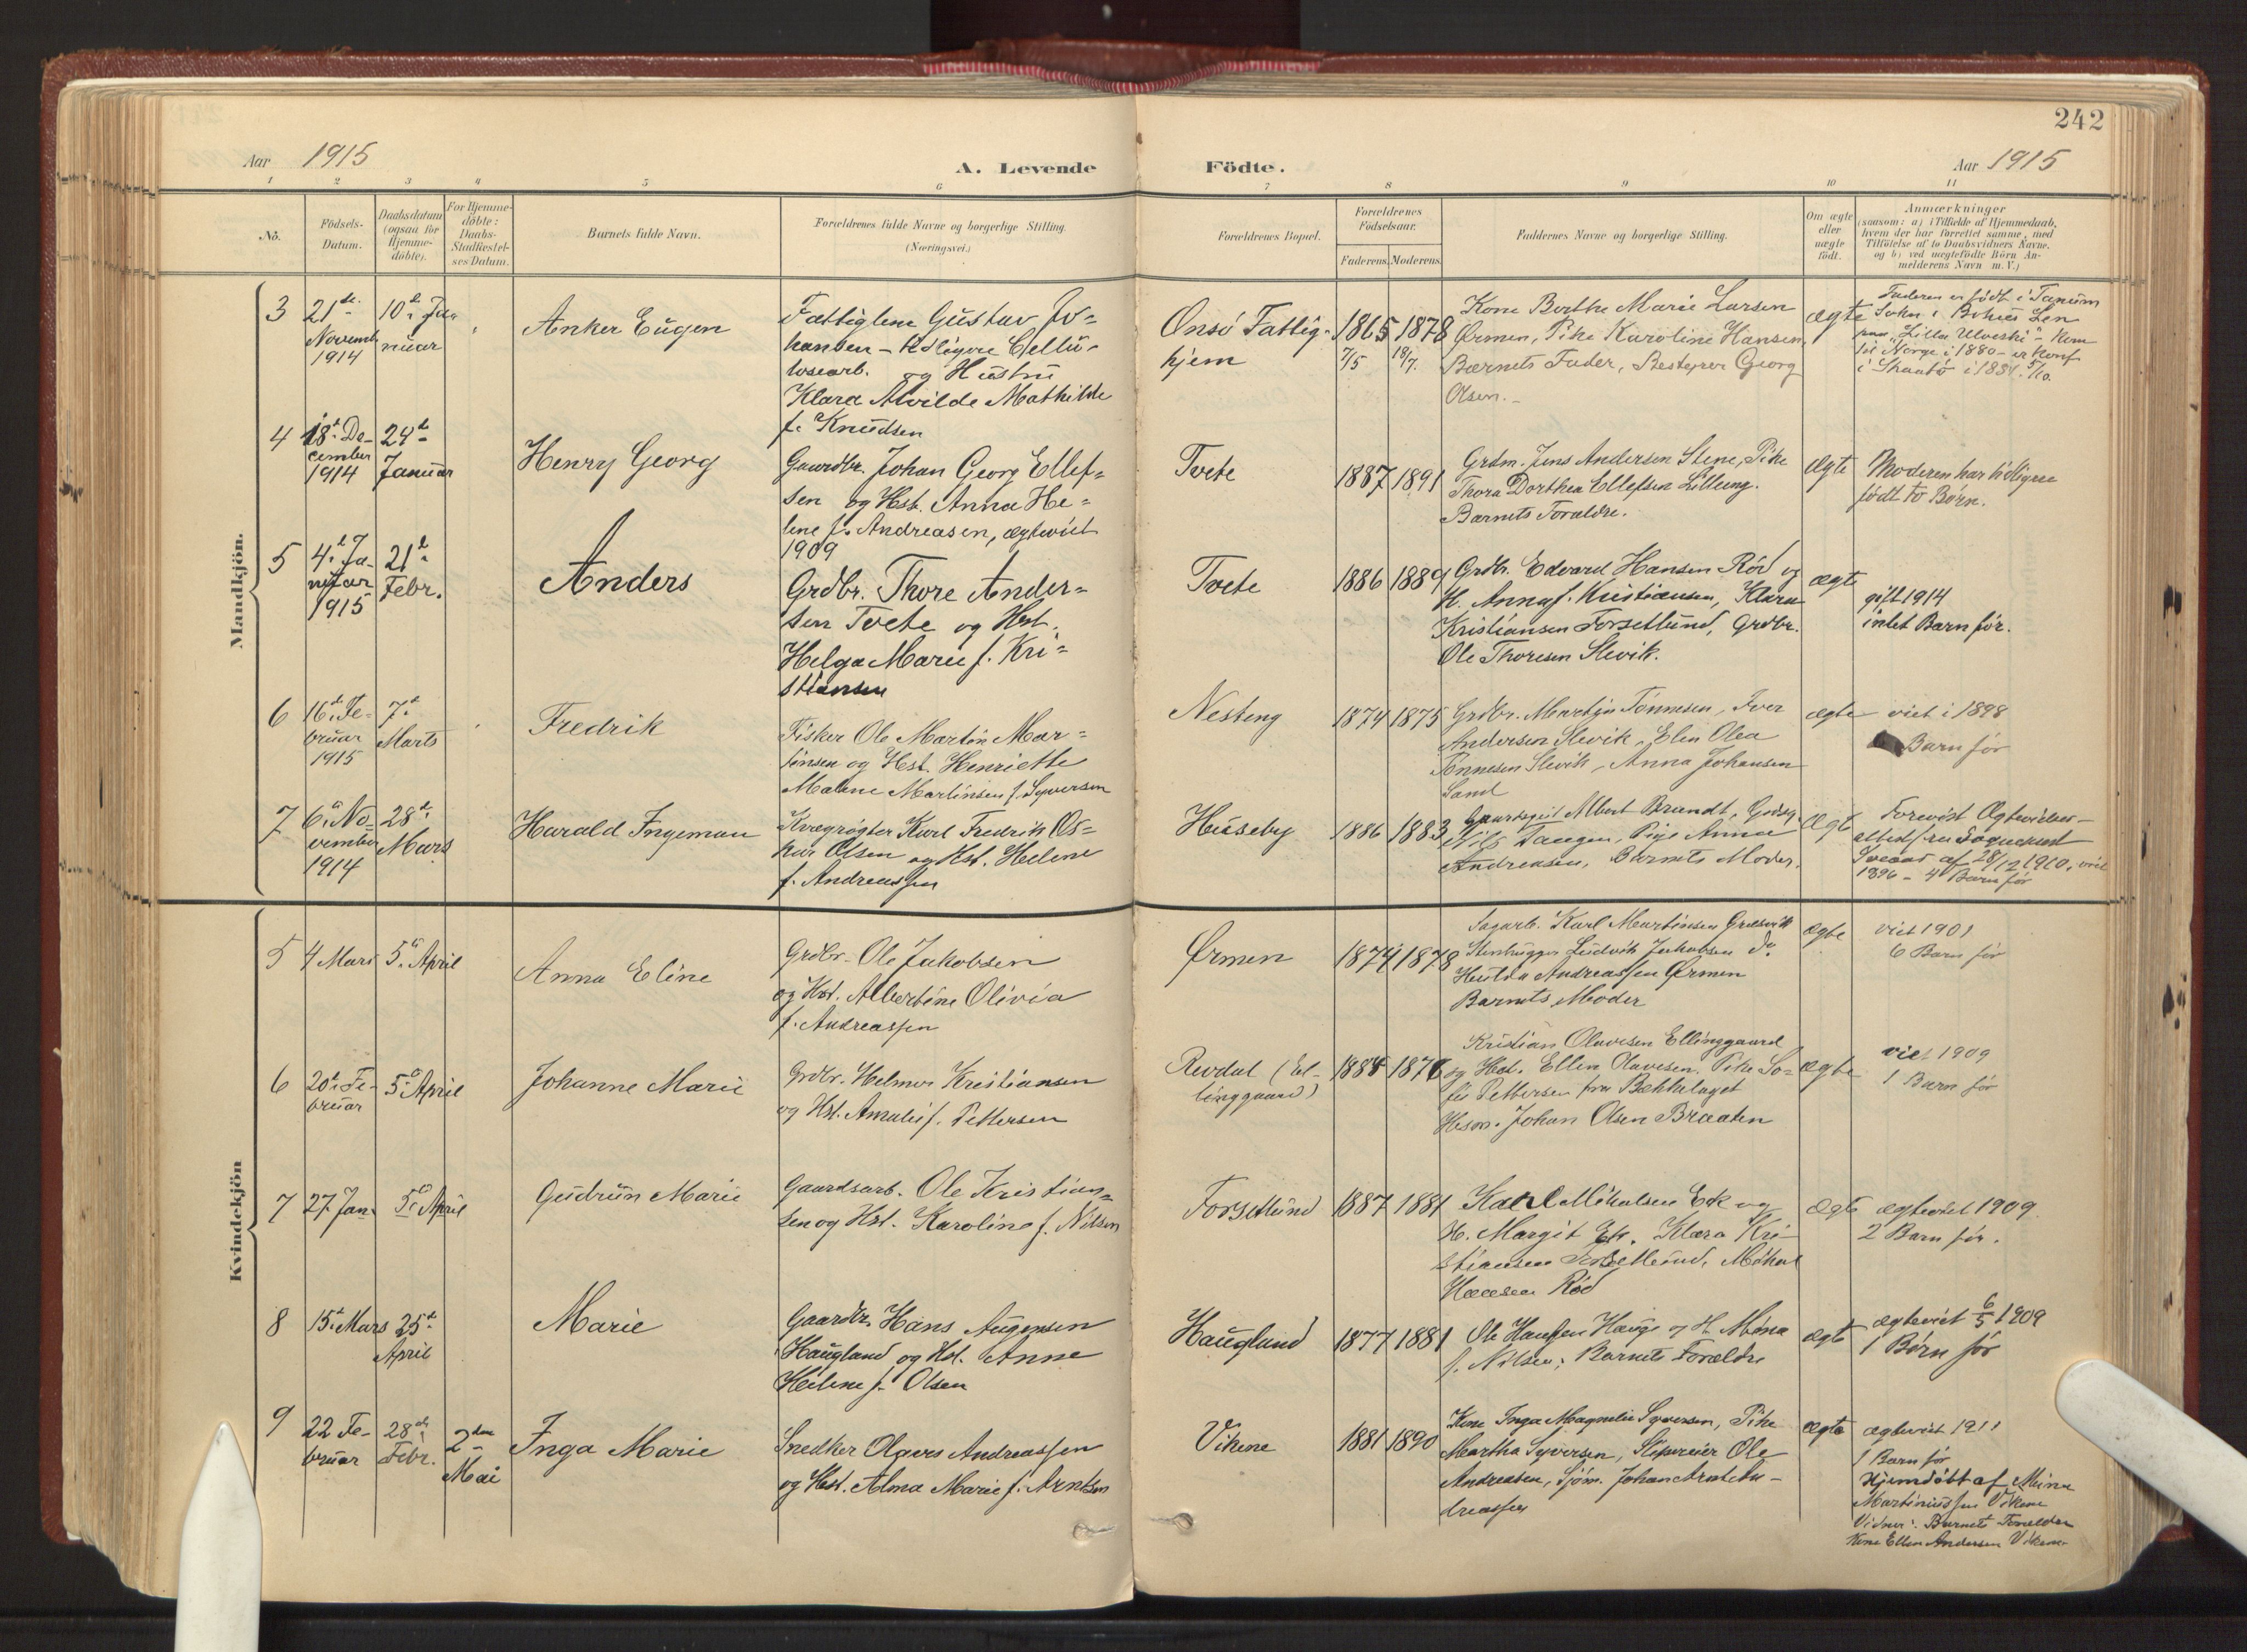 242
Aar 1915
A. Levende Födte.
Aar 1915
1 2 3 4 5 6 7 8 9 10 11
No.
Födsels-
Datum.
Daabsdatum
(ogsaa for
Hjemme-
döbte).
For Hjemme-
döbte:
Daabs-
Stadfæstel-
ses Datum.
Barnets fulde Navn.
Forældrenes fulde Navne og borgerlige Stilling.
(Næringsvei.)
Forældrenes Bopæl.
Forældrenes
Födselsaar.
Faderens. Moderens.
Faddernes Navne og borgerlige Stilling.
Om ægte
eller
uægte
födt.
Anmærkninger
(saasom: a) i Tilfælde af Hjemmedaab,
hvem der har forrettet samme, med
Tilföielse af to Daabsvidners Navne,
og b) ved uægtefödte Börn An-
melderens Navn m. V.)
Mandkjön.
3
21de
Novemb
1914
10de Ja-
nuar
Anker Eugen
Fattiglem Gustav Jo-
hansen - tidligere Cellu-
losearb. og Hustru
Klara Alvilde Mathilde
f. Knudsen
Onsö Fattig-
hjem
1865 1878
7/5 18/7.
Kone Berthe Marie Larsen
Ørmen, Pike Karoline Hansen,
Barnets Fader, Bestyrer Georg
Olsen.
ægte
Faderen er født i Tanum
Sokn i Bohus Len
paa "Lilla Ulveski" - Kom
til Norge i 1880 - er Konf
i Skaatö i 1881. 5/10.
4
18de De-
cember
1914
24de
Januar
Henry Georg
Gaardbr. Johan Georg Ellef-
sen og Hst. Anna He-
lene f. Andreasen, ægteviet
1909
Tvete
1887 1891
Grdm. Jens Andersen Stene, Pike
Thora Dorthea Ellefsen Lilleng.
Barnets Foreldre.
ægte
Moderen har tidligere
født to Børn.
5
4de Ja-
nuar
1915
21de
Febr.
Anders
Grdbr. Thore Ander-
sen Tvete og Hst.
Helga Marie f. Kri-
stiansen
Tvete
1886 1889
Grdbr. Edvard Hansen Röd og
H. Anna f. Kristiansen, Klara
Kristiansen Forsetlund, Grdbr.
Ole Thoresen Slevik.
ægte
gift 1914
intet Barn før.
6
16de Fe-
bruar
1915
7de
Marts
Fredrik
Fisker Ole Martin Mar-
tinsen og Hst. Henriette
Malene Martinsen f. Syversen
Nesteng
1874 1875
Grdbr. Martin Tønnesen, Iver
Andersen Slevik, Elen Olea
Tønnesen Slevik, Anna Johansen
Sand
ægte
viet i 1898
Barn før
7
6te No-
vember
1914
28de
Mars
Harald Ingeman
Kvægrøgter Karl Fredrik Os-
kar Olsen og Hst. Helene
f. Andreassen
Huseby
1886 1883
Albert Brandt,
Nils Tangen, Pige Anna
Andreasen, Barnets Moder.
ægte
Forevist Ægtevielses-
attest fra Sogneprest
af 28/12 1910, viet
1896 - 4 Barn før
Kvindekjön
5
4 Mars
5te April
Anna Eline
Grdbr. Ole Jakobsen
og Hst. Albertine Olivia
f. Andreassen
Ørmen
1874 1878
Sagarb. Karl Martinsen Gressvik
Stenhugger Ludvik Jakobsen do
Hulda Andreassen Ørmen
Barnets Moder
ægte
viet 1901
6 Barn før
6
20de Fe-
bruar
5te April
Johanne Marie
Grdbr. Helmer Kristiansen
og Hst. Amalie f. Pettersen
Revdal (El-
linggaard)
1884 1876
Kristian Olavesen Ellinggaard
og Hst. Ellen Olavesen. Pike So-
fie Pettersen fra Bækkelaget
Hsm. Johan Olsen Braaten
ægte
viet 1909
1 Barn før
7
27. Jan.
5te April
Gudrun Marie
Gaardsarb. Ole Kristian-
sen og Hst. Karoline f. Nilsen
Forsetlund
1887 1881
Karl Mikalsen Ek og
H. Margit Ek. Klara Kri-
stiansen Forsetlund, Mikal
Hansen Röd
ægte
ægteviet 1909
2 Barn før.
8
15de Mars
25de
April
Marie
Gaardbr. Hans Augensen
Haugland og Hst. Anne
Helene f. Olsen
Haugland
1877 1881
Ole Hansen Hauge og H. Mina
f. Nilsen; Barnets Forældre
ægte
ægteviet 6/5 1909
1 Børn før
9
22 Fe-
bruar
28de
Febr.
2den
Mai
Inga Marie
Snedker Olgers Andreassen
og Hst. Alma Marie f. Arntsen
Vikene
1881 1890
Kone Inga Magnelie Syversen, Pike
Martha Syversen, Ole
Andreasen, Sjöm. Johan Arnt An-
dreassen
ægte
ægteviet 1911
1 Barn før
Hjemdöbt af Mina
Martiniussen Vikene
Vidner: Barnets Forældre
Kone Ellen Andersen Vikene